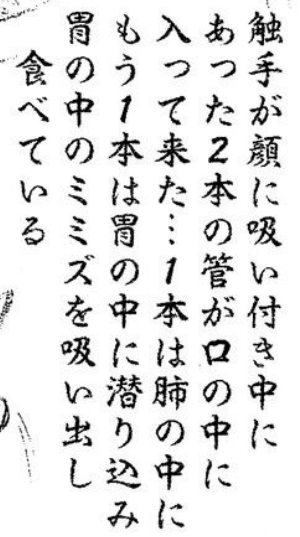 触手が顔に吸い付き中に
あった2本の管が口の中に
入って来た…1本は肺の中に
もう1本は胃の中に潜り込み
胃の中のミミズを吸い出し
食べている